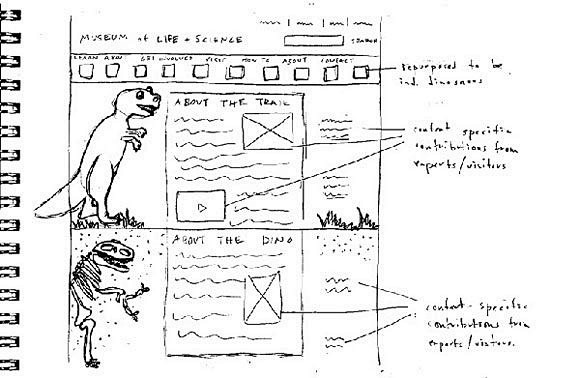 MUSEUM of LIFE + SCIENCE SEARCH
LEARN GET INVOLVED VISIT HOW TO ABOUT CONTACT
repurposed to be
ind. dinosaurs
ABOUT THE TRAIL
content specific
contributions from
experts/visitors
ABOUT THE DINO
content-specific
contributions from
experts/visitors.